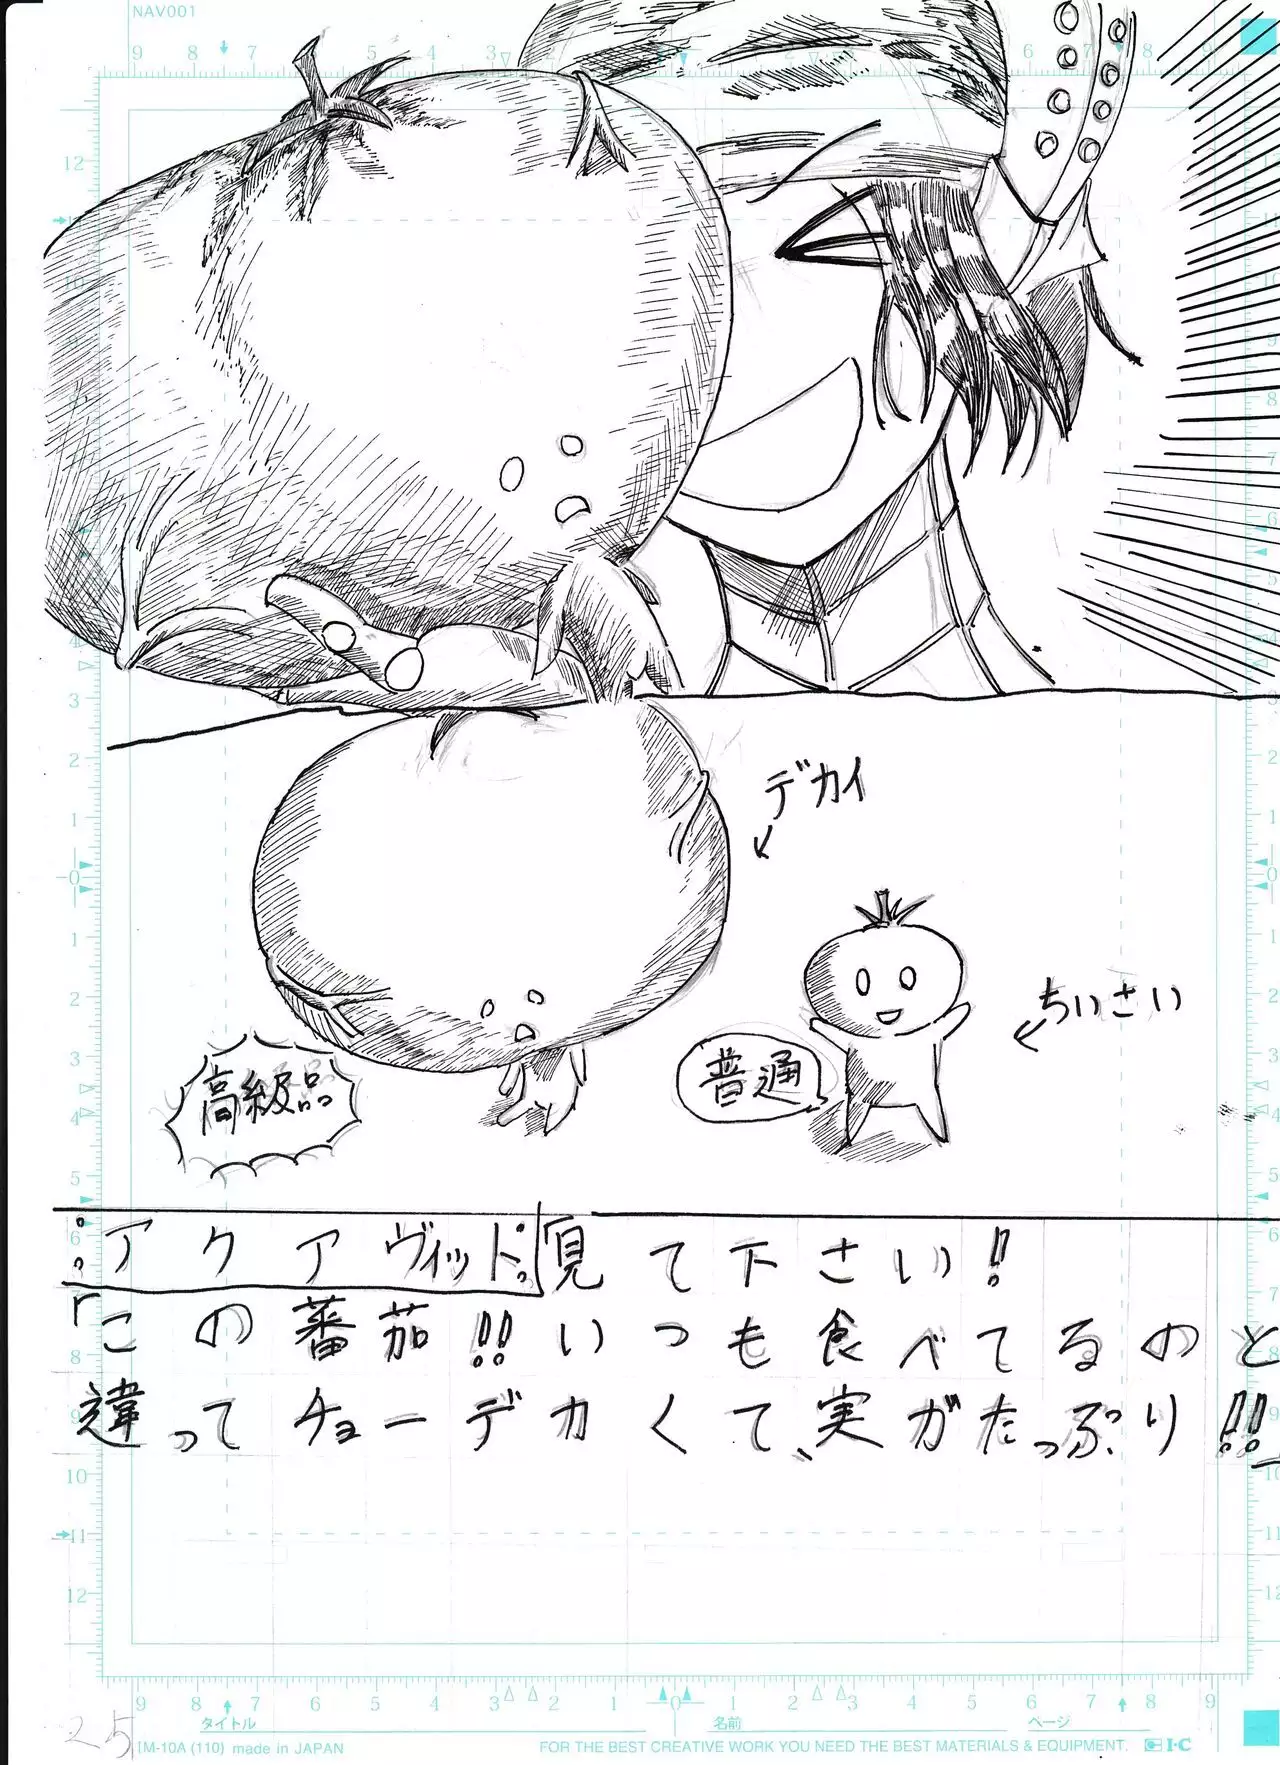 NAV001
デカイ
ちいさい
高級品
普通
:アクアヴィット:見て下さい!
「この蕃茄!!いつも食べてるのと
違ってチョーデカくて、実がたっぷり!!」
タイトル
名前
ページ
25
IM-10A (110) made in JAPAN
FOR THE BEST CREATIVE WORK YOU NEED THE BEST MATERIALS & EQUIPMENT.
I·C